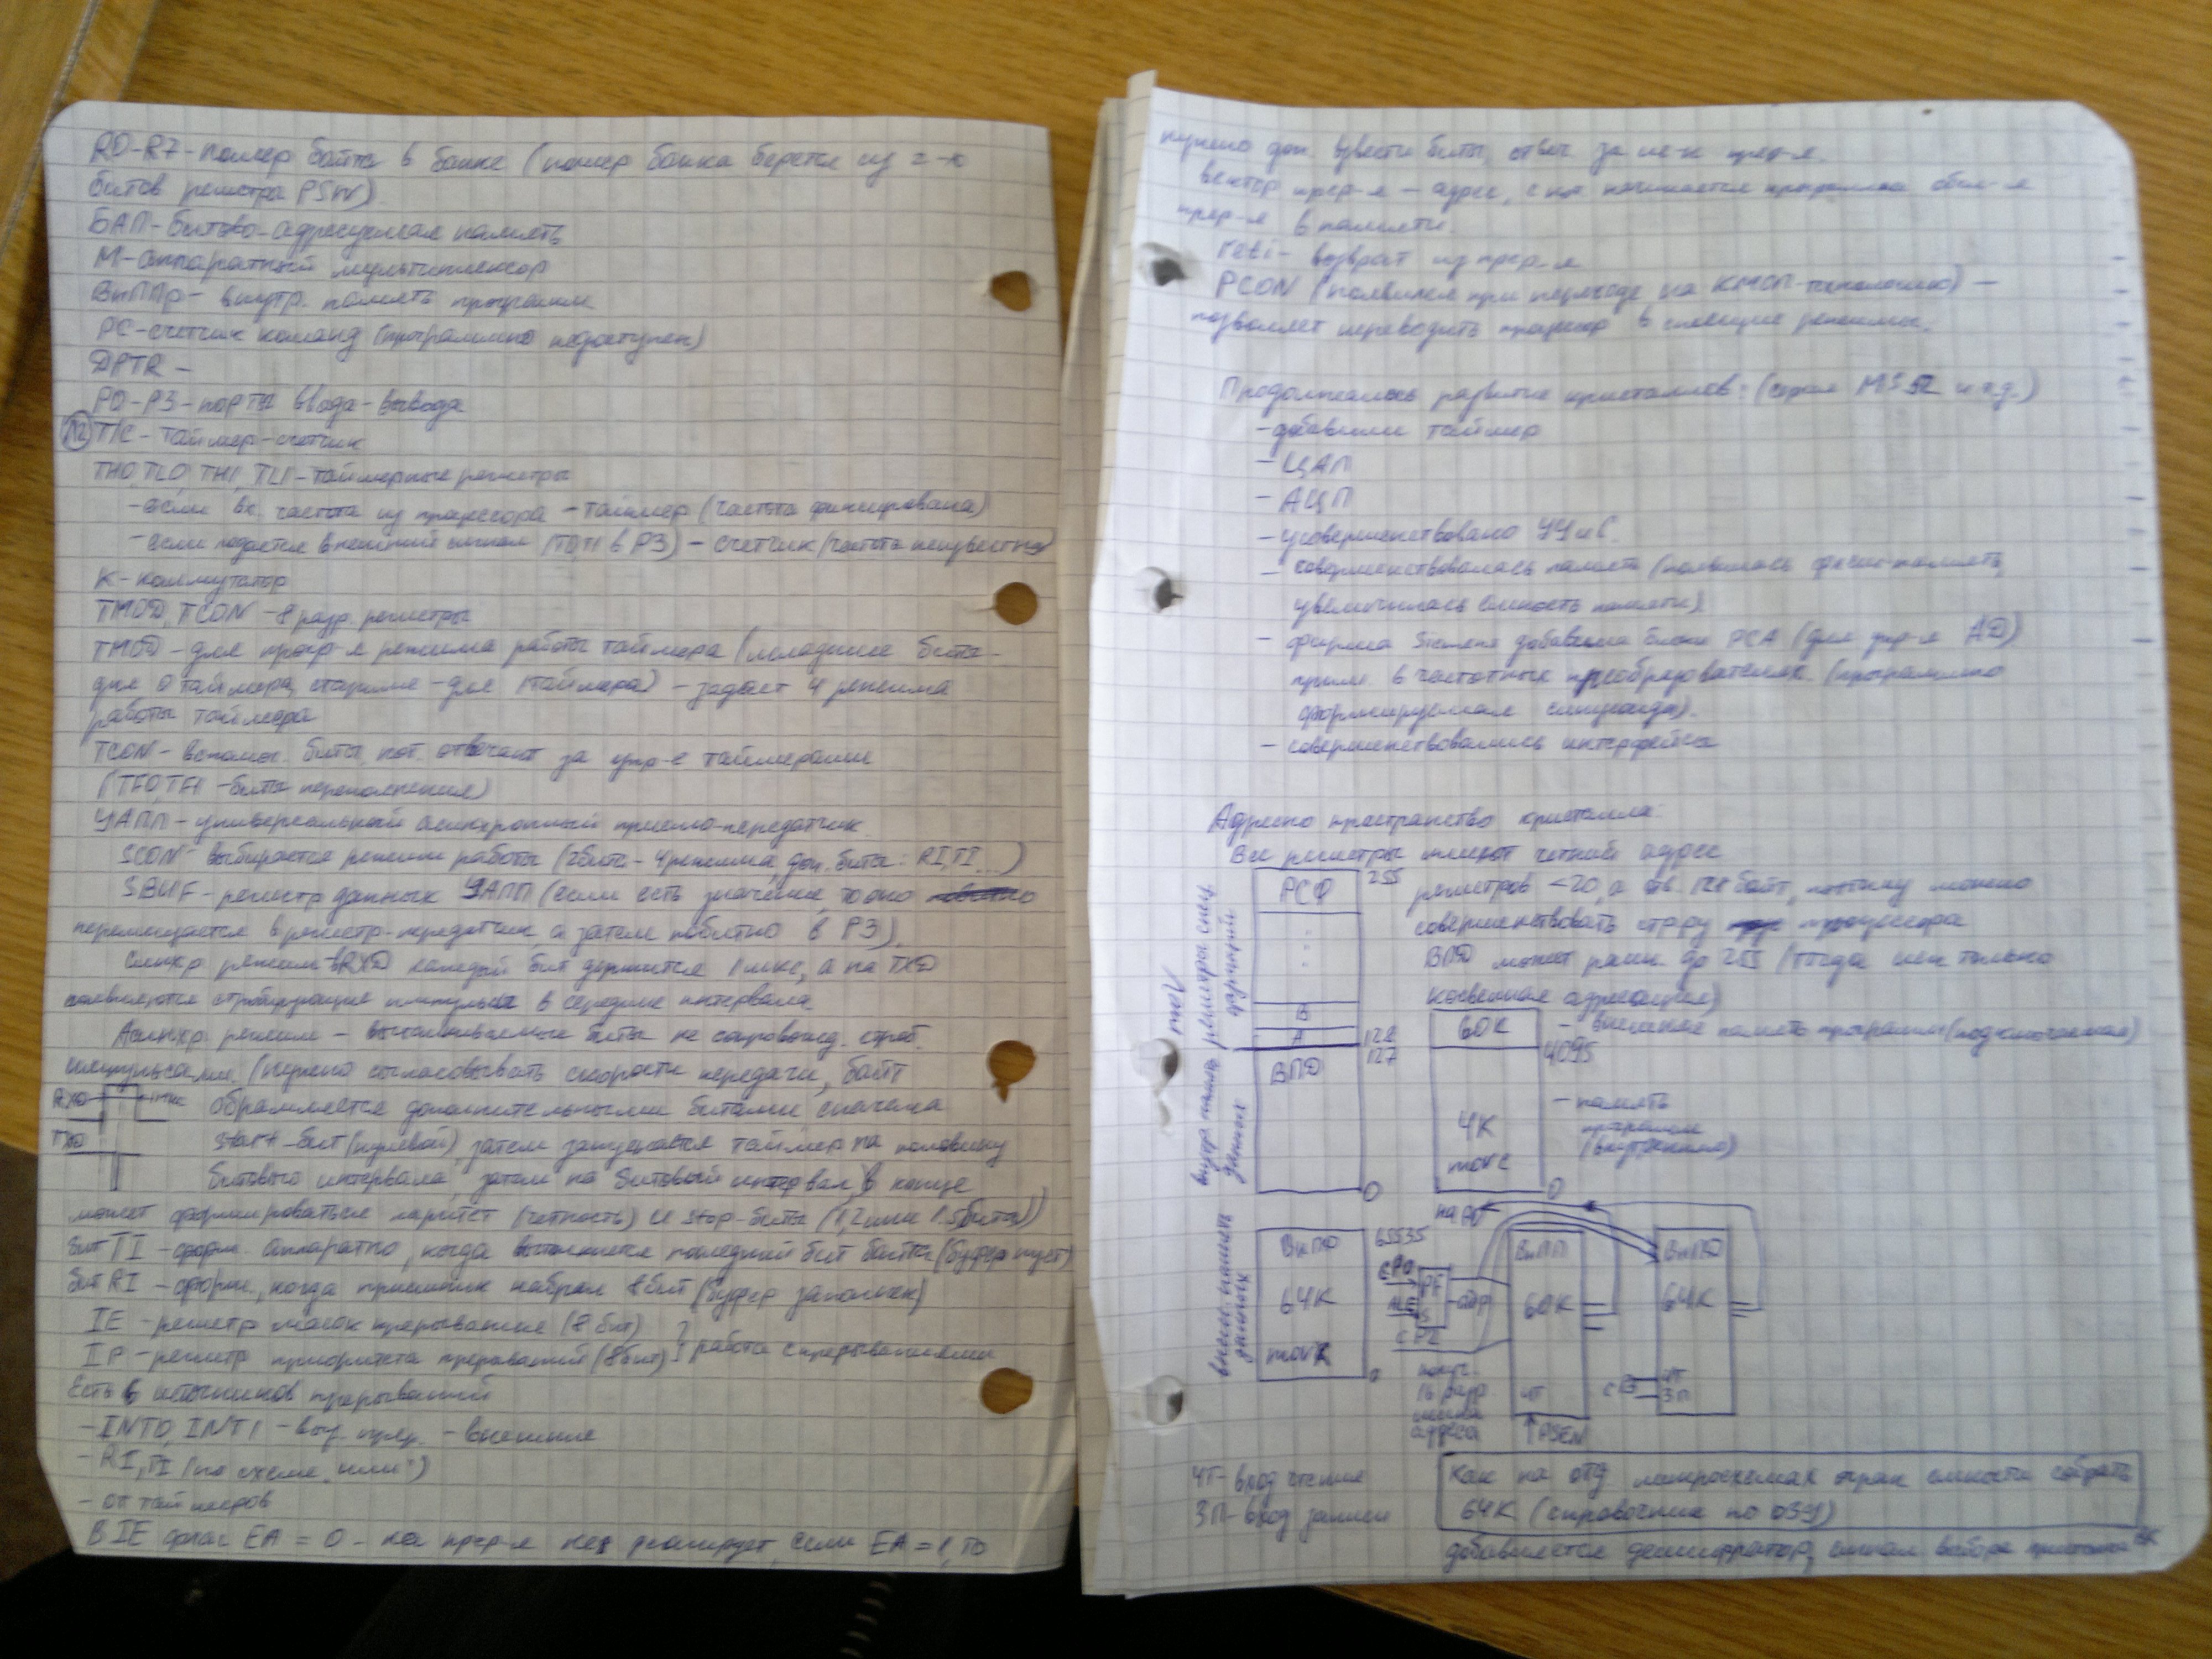 R0-R7 - номер байта в банке (номер банка берется из 2-х
битов регистра PSW)
БАП - битово-адресуемая память
М - аппаратный мультиплексор
ВнППр - внутр. память программ
РС - счетчик команд (программно недоступен)
DPTR -
Р0-Р3 - порты ввода-вывода
Т/С - таймер-счетчик
TH0, TL0, TH1, TL1 - таймерные регистры
- если вх. частота из процесора - таймер (частота фиксирована)
- если подается внешний сигнал (Т0,Т1 в Р3) - счетчик (частота неизвестна)
К - коммутатор
TMOD, TCON - 8 разр. регистры
TMOD - для прогр-я режима работы таймера (младшие биты -
для 0 таймера, старшие - для 1 таймера) - задает 4 режима
работы таймера
TCON - вспомог. биты, кот. отвечают за упр-е таймерами
(TF0, TF1 - биты переполнения)
УАПП - универсальный асинхронный приемо-передатчик.
SCON - выбирается режим работы (2 бита - 4 режима, доп. биты: RI, TI...)
SBUF - регистр данных УАПП (если есть значение, то оно
перемещается в регистр-передатчик, а затем побитно в Р3).
Синхр. режим - в RXD каждый бит держится 1 мкс, а на TXD
появляются стробирующие импульсы в середине интервала
Асинхр. режим - выталкиваемые биты не сопровожд. строб.
импульсами. (нужно согласовывать скорости передачи, байт
RXD 1 мкс обрамляется дополнительными битами сначала
TXD start-бит (нулевой), затем запускается таймер на половину
битового интервала, затем на битовый интервал, в конце
может формироваться паритет (четность) и stop-биты (1, 2 или 1.5 бита))
Бит TI - форм. аппаратно, когда выталкивается последний бит байта (буфер пуст)
Бит RI - форм., когда приемник набрал 8 бит (буфер заполнен)
IE - регистр масок прерывания (8 бит)
IP - регистр приоритета прерываний (8 бит) } работа с прерываниями
Есть источников прерываний
- INT0, INT1 - прер. - внешние
- RI, TI (по схеме "или")
- от таймеров
В IE флаг EA = 0 - на прер-я не реагирует, если EA = 1, то
нужно доп. ввести биты, отвеч. за прер-я.
Вектор прер-я - адрес, с кот. начинается программа обраб-я
прер-я в памяти.
reti - возврат из прер-я
PCON (появился при переходе на КМОП-технологию) -
позволяет переводить процесор в спящие режимы.
Продолжалось развитие кристаллов: (серия MS 52 и т.д.)
- добавили таймер
- ЦАП
- АЦП
- усовершенствовано
- совершенствовалась память (появилась флеш-память,
увеличилась емкость памяти)
- фирма Siemens добавила блоки PCA (для упр-я АД)
прим. в частотных преобразователях (программно
формируемая синусоида).
- совершенствовались интерфейсы
Адресно пространство кристалла:
Все регистры имеют четный адрес
РСФ 255 регистров <20, а 128 байт, поэтому можно
совершенствовать стр-ру процесора
ВПД может расш. до 255 (тогда только
косвенная адресация)
В
А
128
127
ВПД
0
mov
регистры спец. функций
внутр. память данных
60К - внешняя память программ (подключаемая)
4095
4К
movc
0
- память
программ
(внутренняя)
внеш. память данных
ВнПД 65535
64К
movx
0
на Р0
СР0
ALE
СР2
РГ
адр
получ.
16 разр.
шина
адреса
ВнПП
60К
ЧТ
PSEN
ВнПД
64К
ЧТ
ЗП
ЧТ - вход чтения
ЗП - вход записи
Как на отд. микросхемах огран емкости собрать
64К (справочник по ОЗУ)
добавляется дешифратор, сигнал выбора кристалла ВК